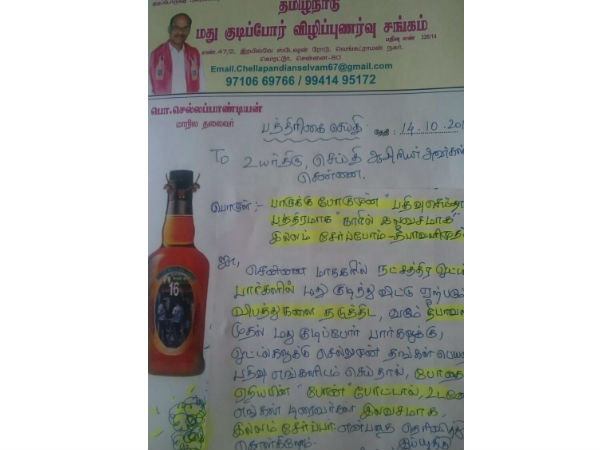 தமிழ்நாடு
மது குடிப்போர் விழிப்புணர்வு சங்கம்
பதிவு எண்
எண்.47/2, இரயில்வே ஸ்டேஷன் ரோடு, வெங்கட்ராமன் நகர்.
கொரட்டூர், சென்னை-80
Email.Chellapandianselvam67@gmail.com
97106 69766 / 99414 95172
பொ.செல்லப்பாண்டியன்
மாநில தலைவர்
பத்திரிகை செய்தி
தேதி : 14.10.20
To உயர்திரு, செய்தி ஆசிரியர் அவர்கள்
சென்னை.
பொருள் :- பாருக்கு போகுமுன் "பதிவு செய்தால்
பத்திரமாக "காரில் இலவசமாக"
இல்லம் சேர்ப்போம் - தீபாவளி முதல்
ஐயா,
சென்னை மாநகரில் நட்சத்திர ஓட்டல்
பார்களில் மது குடித்து விட்டு ஏற்படும்
விபத்துகளை தடுத்திட, வரும் தீபாவளி
முதல் மது குடிப்போர் பார்களுக்கு,
ஓட்டல்களுக்கு செல்லுமுன் தங்கள் பெயரை
பதிவு எங்களிடம் செய்தால், போதை
ஏறியபின் "போன்" போட்டால், உடனே
எங்கள் டிரைவர்கள் இலவசமாக
இல்லம் சேர்ப்பர் என்பதை தெரிவித்து
கொள்கிறோம். இப்படிக்கு
16